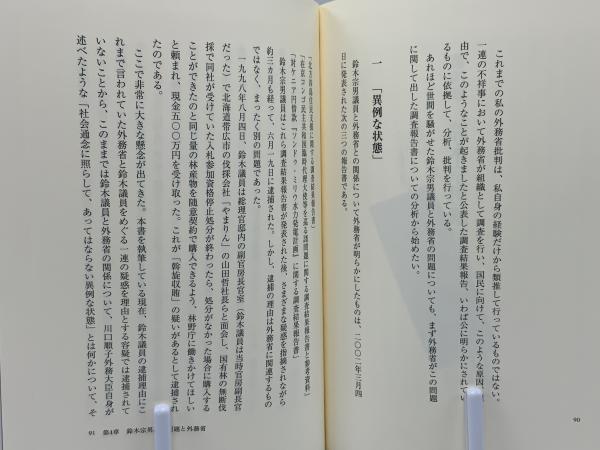 これまでの私の外務省批判は、私自身の経験だけから類推して行っているものではない。
一連の不祥事において外務省が組織として調査を行い、国民に向けて、このような原因
由で、このようなことが起きましたと公表した調査結果報告、いわば公に明らかにされてい
るものに依拠して、分析、批判を行っている。
あれほど世間を騒がせた鈴木宗男議員と外務省の問題についても、まず外務省がこの問題
に関して出した調査報告書についての分析から始めたい。
一 「異例な状態」
鈴木宗男議員と外務省との関係について外務省が明らかにしたものは、二〇〇二年三月四
日に発表された次の三つの報告書である。
「北方四島住民支援に関する調査結果報告書」
「在京コンゴ民主共和国臨時代理大使等を巡る諸問題に関する調査結果報告書と参考資料」
「対ケニア円借款『ソンドゥ・ミリウ水力発電計画』に関する調査結果報告書」
鈴木宗男議員はこれら調査結果報告書が発表された後、さまざまな疑惑を指摘されながら
約三カ月も経って、六月一九日に逮捕された。しかし、逮捕の理由は外務省に関連するもの
ではなく、まったく別の問題であった。
一九九八年八月四日、鈴木議員は総理官邸内の副官房長官室(鈴木議員は当時官房副長官
だった)で北海道帯広市の伐採会社「やまりん」の山田哲社長らと面会し、国有林の無断伐
採で同社が受けていた入札参加資格停止処分が終わったら、処分がなかった場合に購入する
ことができたのと同じ量の林産物を随意契約で購入できるよう、林野庁に働きかけてほしい
と頼まれ、現金五〇〇万円を受け取った。これが「斡旋収賄」の疑いがあるとして逮捕され
たのである。
ここで非常に大きな懸念が出てきた。本書を執筆している現在、鈴木議員の逮捕理由にこ
れまで言われていた外務省と鈴木議員をめぐる一連の疑惑を理由とする容疑では逮捕されて
いないことから、このままでは鈴木議員と外務省の関係について、川口順子外務大臣自身が
述べたような「社会通念に照らして、あってはならない異例な状態」とは何かについて、そ
90
91 第4章 鈴木宗男 問題と外務省